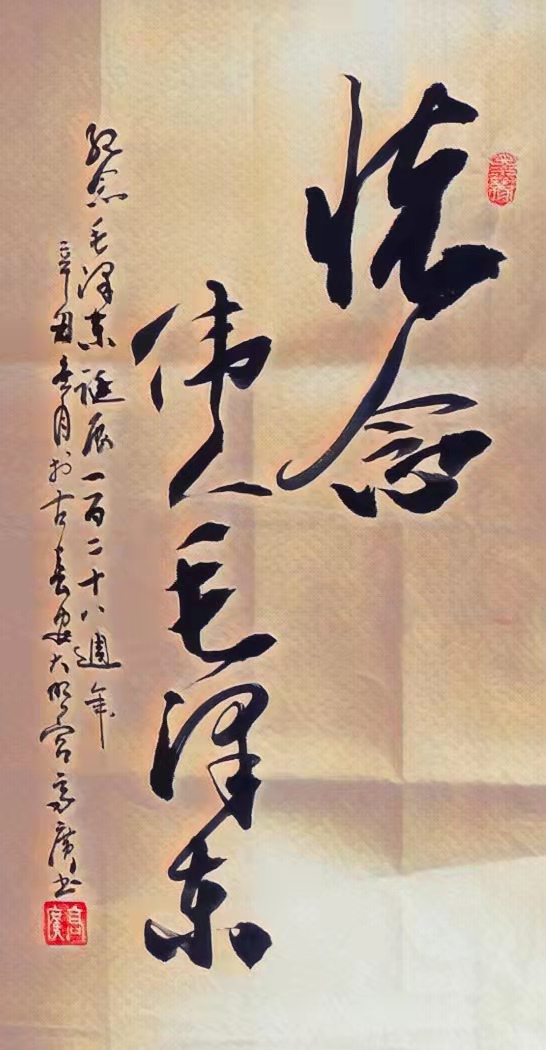 怀念
伟人毛泽东
纪念毛泽东诞辰一百二十八週年
辛丑冬月於古長安大明宫高廣书
高廣